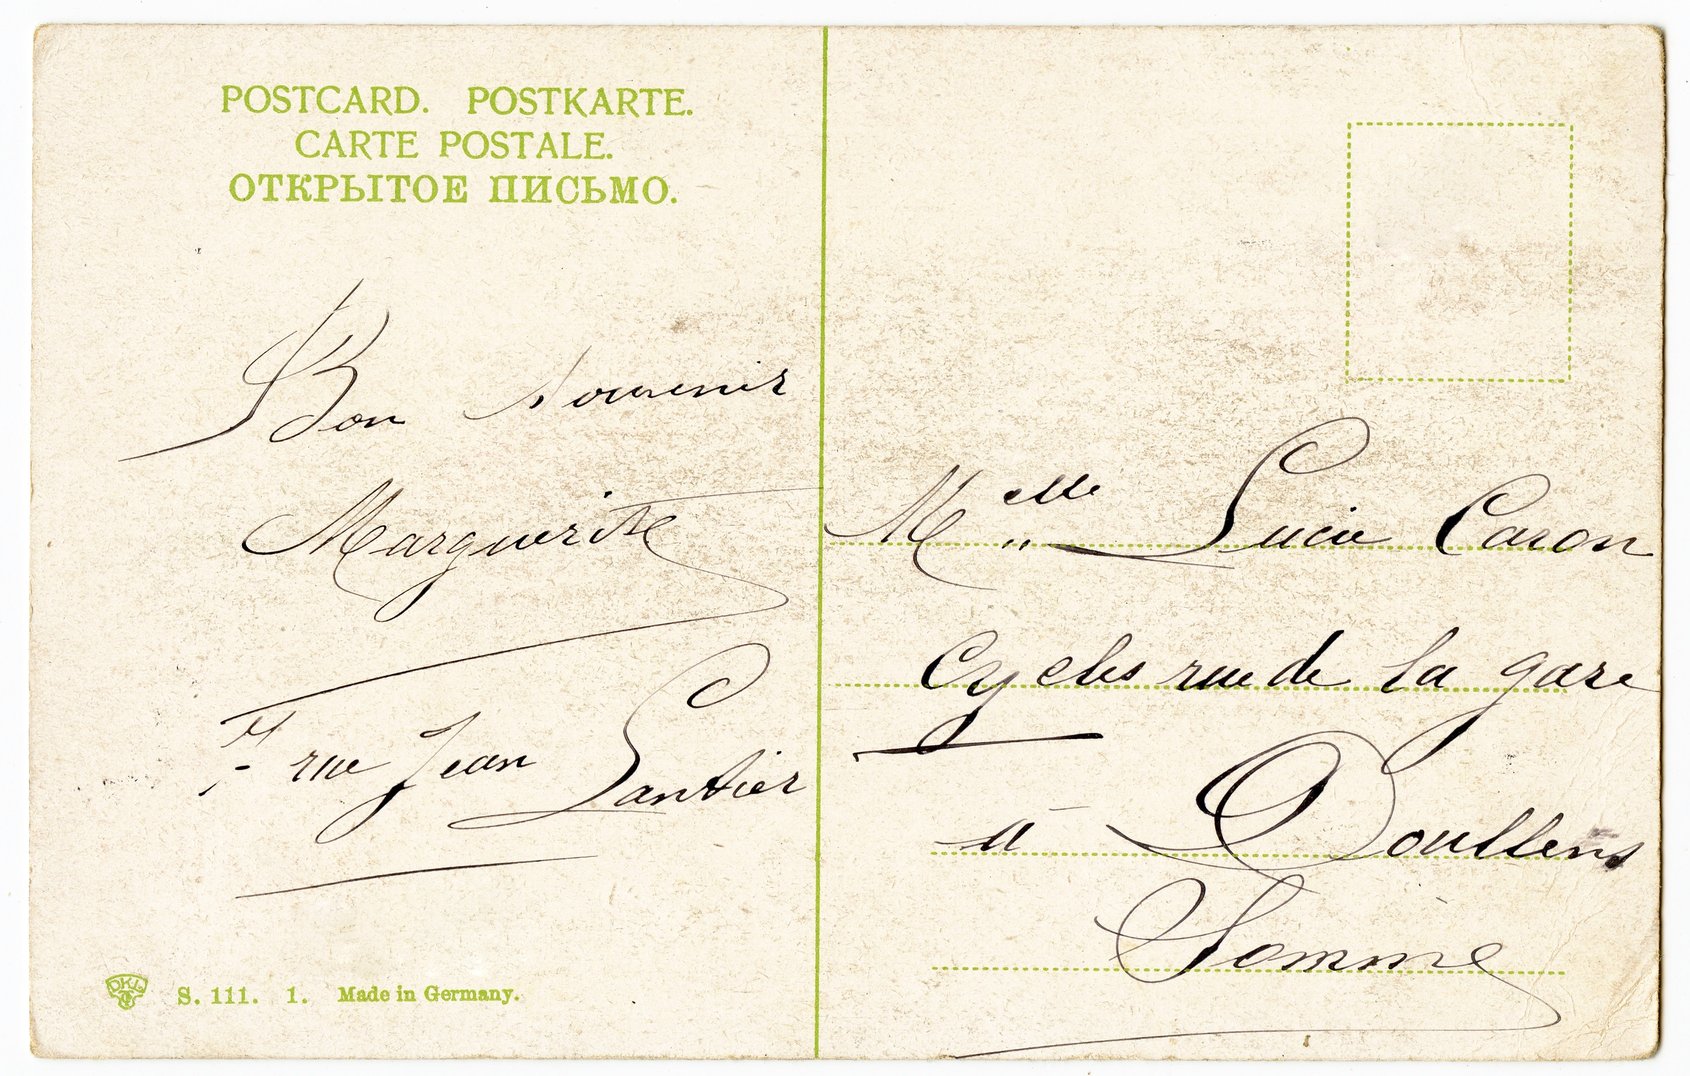 POSTCARD. POSTKARTE.
CARTE POSTALE.
ОТКРЫТОЕ ПИСЬМО.
Bon souvenir
Marguerite
7 rue Jean Lantier
DKL
S. 111. 1. Made in Germany.
Melle Lucie Caron
Cycles rue de la gare
à Doullens
Somme